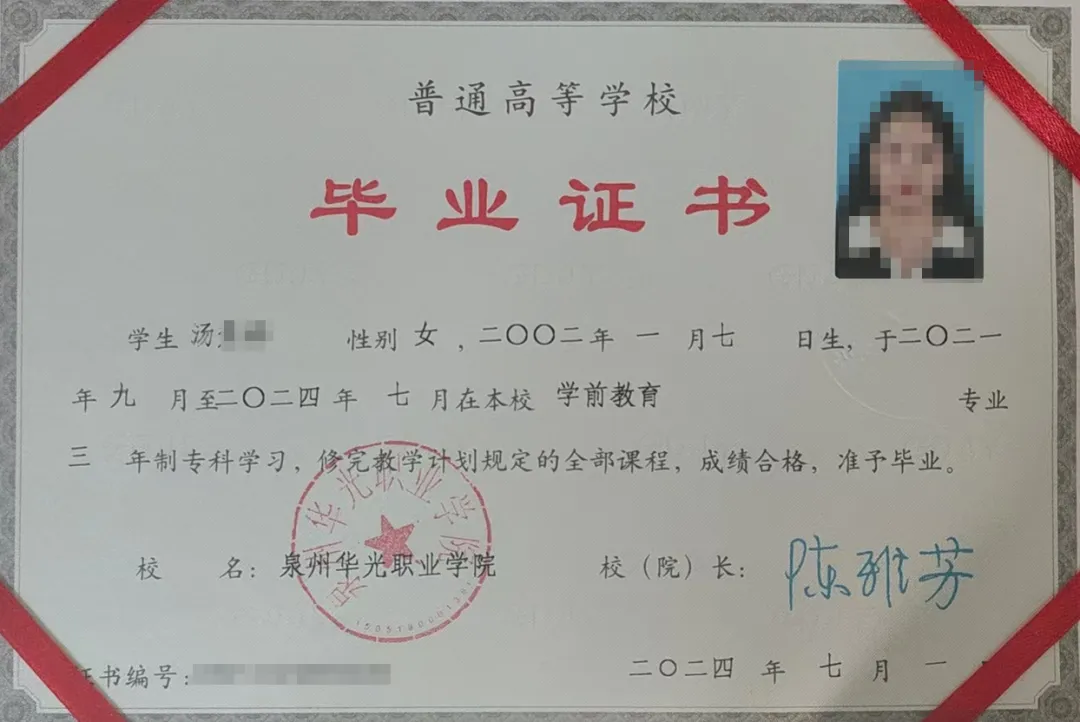 普通高等学校
毕业证书
学生 汤 性别 女 ，二〇〇二年 一 月七 日生，于二〇二一
年 九 月至二〇二四 年 七 月在本校 学前教育 专业
三 年制专科学习，修完教学计划规定的全部课程，成绩合格，准予毕业。
校 名：泉州华光职业学院 校（院）长：陈雅芳
泉州华光职业学院
证书编号： 二〇二四 年 七 月 一